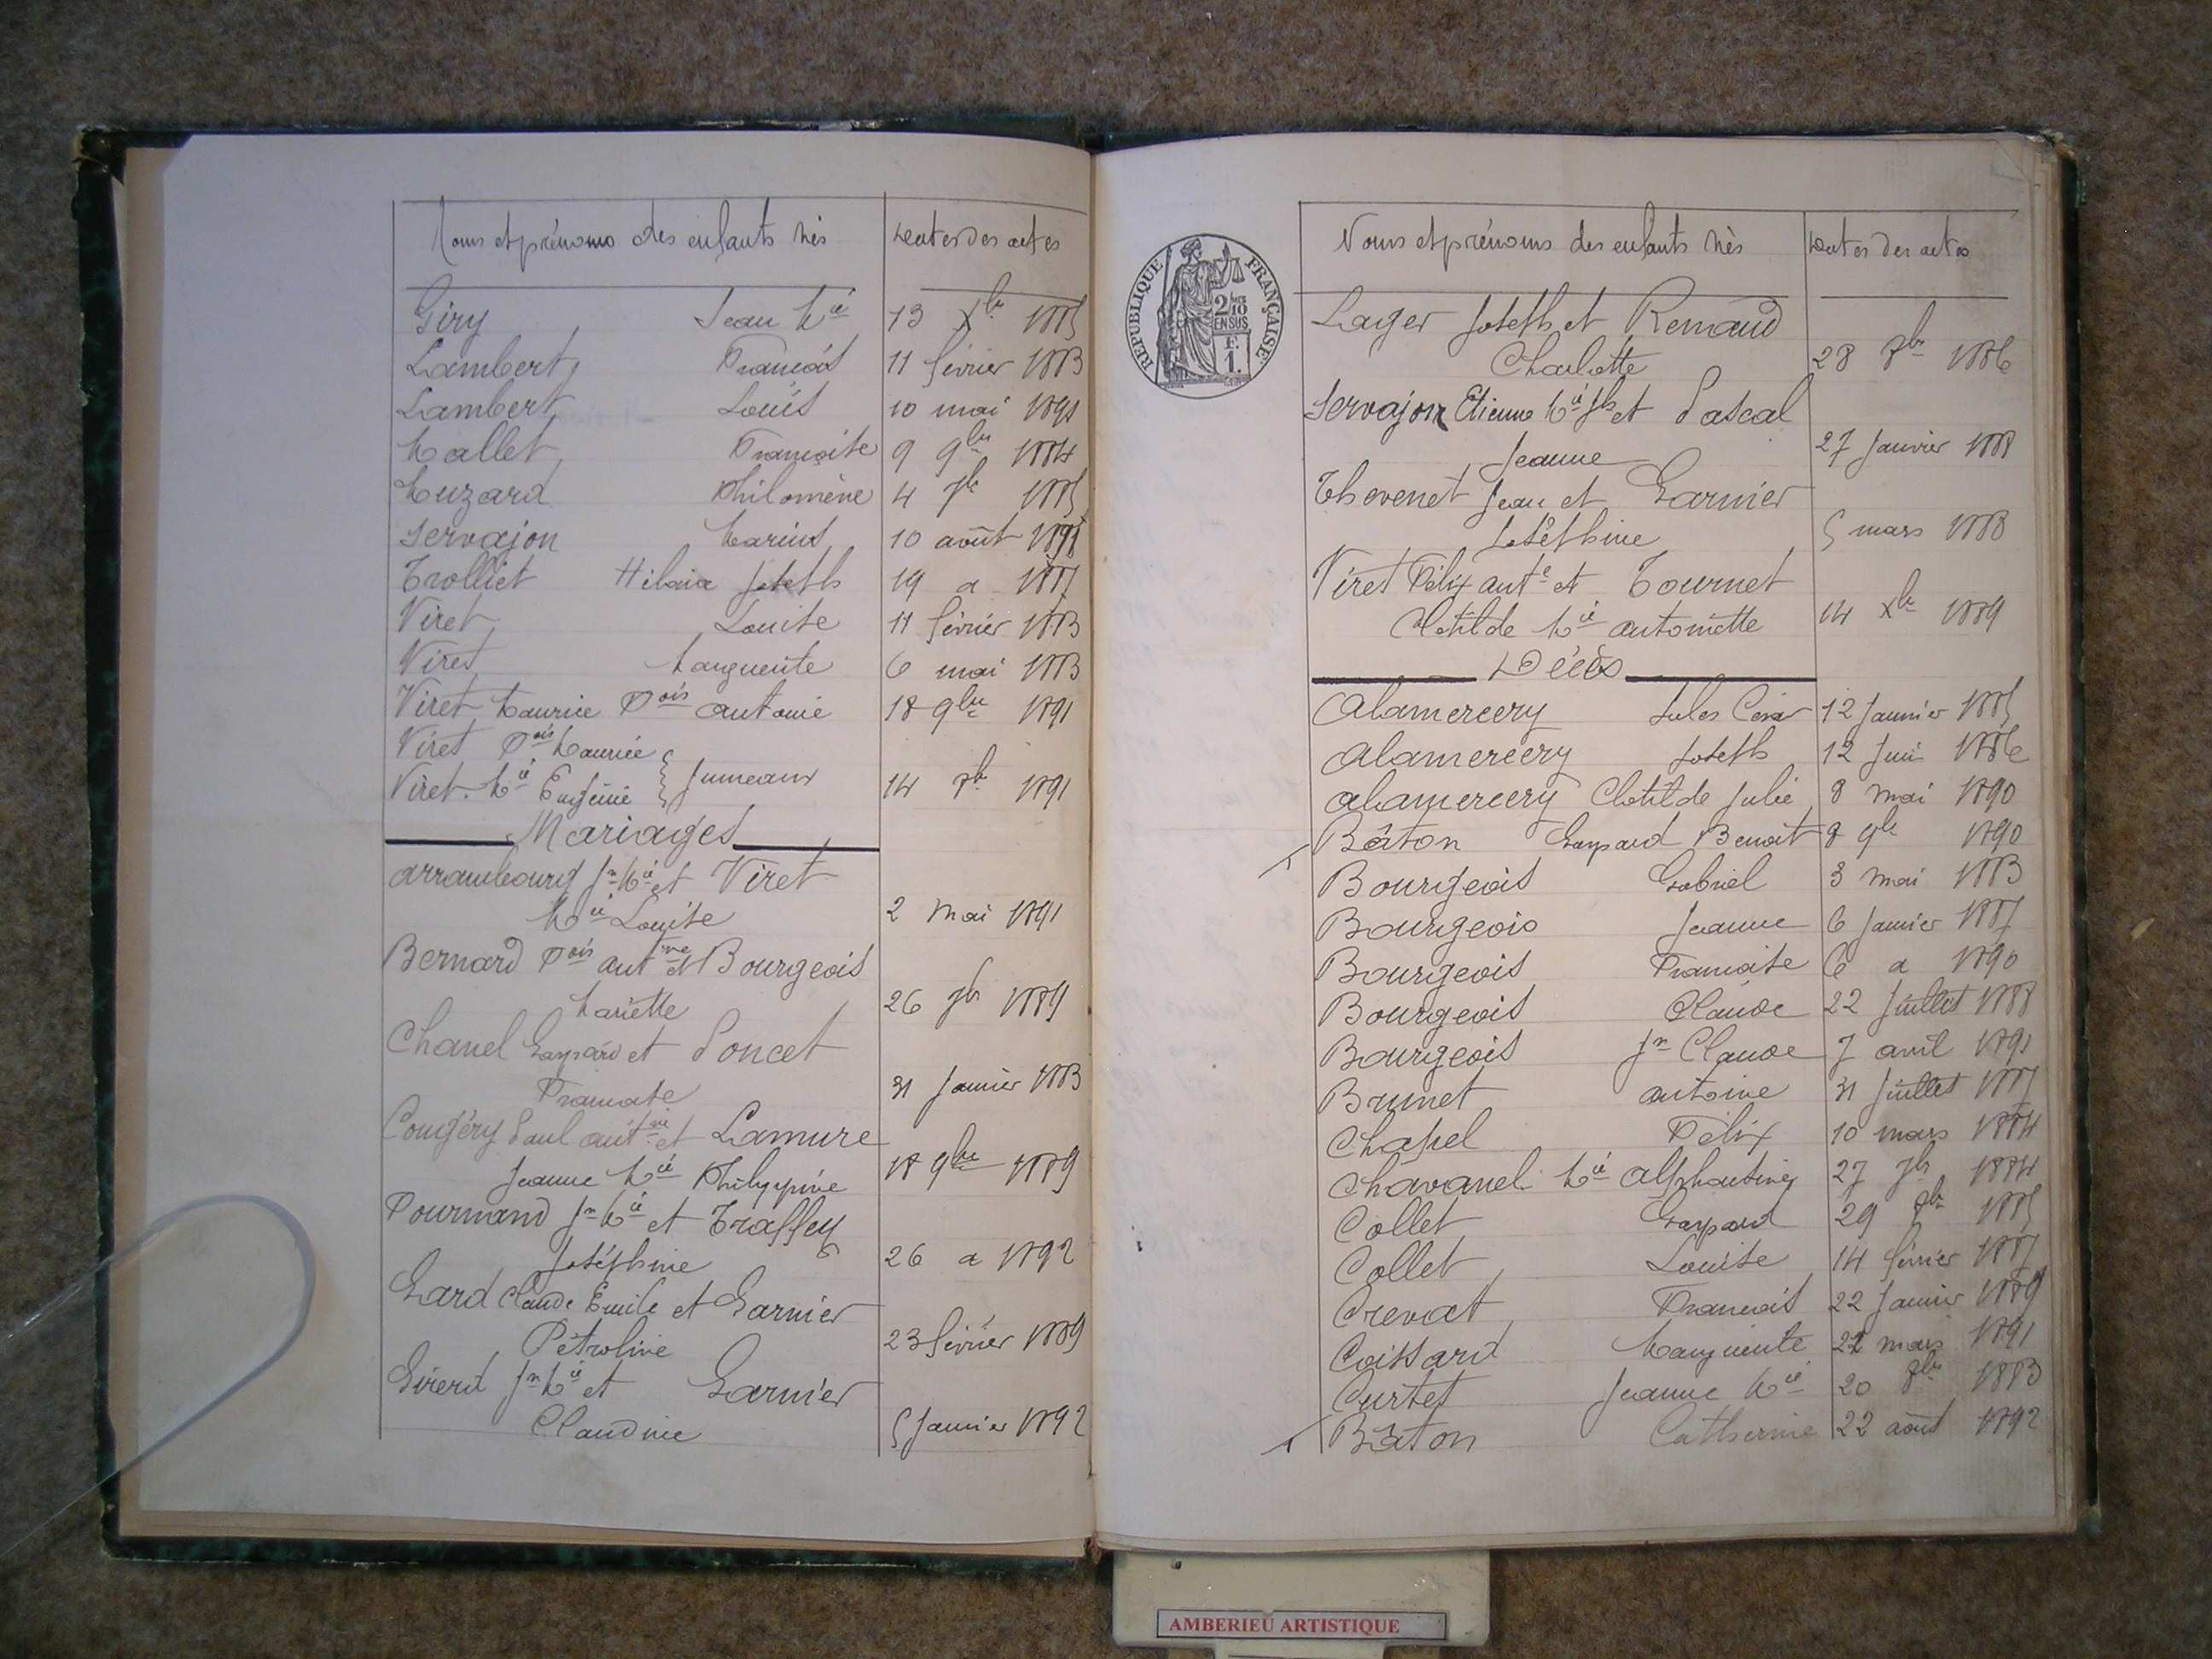 Noms et prénoms des enfants nés | Dates des actes
Giry Jean Mie 13 Xbre 1885
Lambert François 11 février 1883
Lambert Louis 10 mai 1891
Mallet Françoise 9 9bre 1884
Muzard Philomène 4 1885
Servajon Marius 10 août 1891
Trolliet Hilaire Joseph 19 a 1887
Viret Louise 11 février 1883
Viret Marguerite 6 mai 1883
Viret Maurice Fois Antoine 18 9bre 1891
Viret Fois Maurice
Viret Mie Eugénie } Jumeaux 14 1891
Mariages
Arrambourg Jn Mie et Viret
Mie Louise 2 mai 1891
Bernard Fois Ant ne et Bourgeois
Mariette 26 1889
Chanel Gaspard et Poncet
Françoise 31 Janvier 1883
Paul Ant ne et Lamure
Jeanne Mie Philippine 18 9bre 1889
Fournand Jn Mie et Traffey
Joséphine 26 a 1892
Gard Claude Emile et Garnier
Pétroline 23 février 1889
Girerd Jn Mie et Garnier
Claudine 5 Janvier 1892
Noms et prénoms des enfants nés | Dates des actes
REPUBLIQUE FRANÇAISE
2/10 EN SUS
F. 1.
Lager Joseph et Renaud
Charlotte 28 1886
Servajon Etienne Mie Jh et Pascal
Jeanne 27 Janvier 1888
Thevenet Jean et Garnier
Joséphine 5 mars 1883
Viret Félix Ante et Tournet
Clotilde Mie Antoinette 14 Xbre 1889
Décès
Alamercery Jules César 12 Janvier 1885
Alamercery Joseph 12 Juin 1886
Alamercery Clotilde Julie 8 mai 1890
Bâton Gaspard Benoit 8 9bre 1890
Bourgeois Gabriel 3 mai 1883
Bourgeois Jeanne 6 Janvier 1887
Bourgeois Françoise 6 a 1890
Bourgeois Claude 22 Juillet 1888
Bourgeois Jn Claude 7 avril 1891
Brunet Antoine 31 Juillet 1887
Chapel Félix 10 mars 1884
Chavanel Mie Alphonsine 27 1884
Collet Gaspard 29 1885
Collet Louise 14 février 1887
Crevat François 22 Janvier 1889
Coissard Marguerite 22 mars 1891
Curtet Jeanne Mie 20 1883
Bâton Catherine 22 août 1892
AMBERIEU ARTISTIQUE